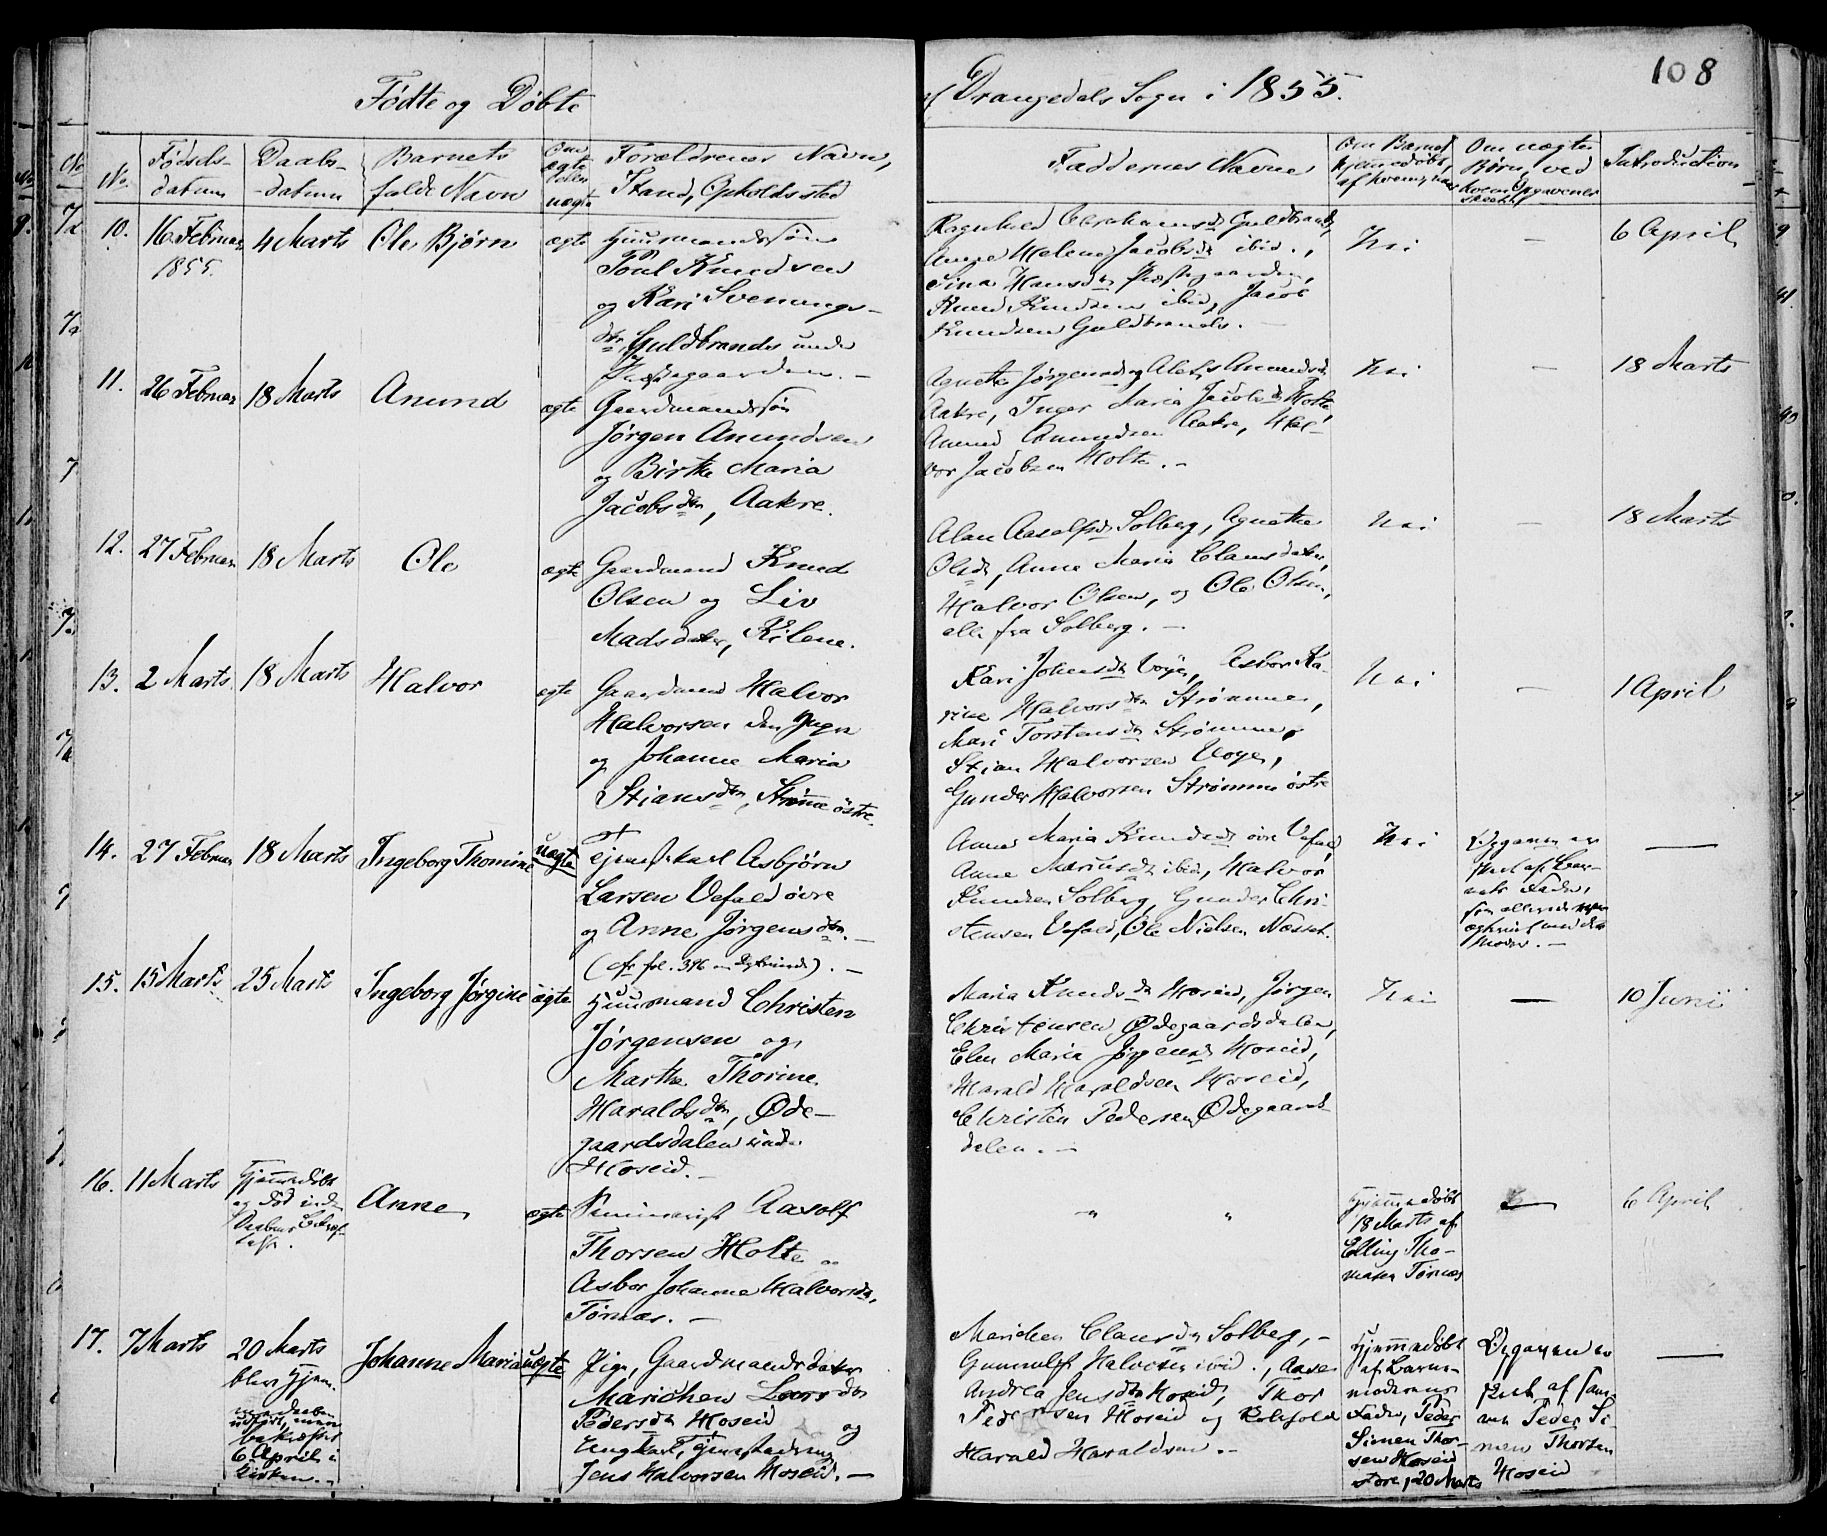 Fødte og Døbte
i Drangedals Sogn i 1855.
108
No. Fødsels-datum Daabs-datum Barnets fulde Navn Om ægte eller uægte Forældrenes Navn, Stand, Opholdssted Faddernes Navne Om Barnet hjemmedøbt, af hvem, naar Om uægte Børn, ved hvem Opgavene Introduction
10. 16 Februar 1855. 4 Marts Ole Bjørn ægte
Huusmandssøn
Poul Knudsen
og Kari Svenungs-
dtr Guldbrandes under
Præstegaarden. -
Ragnhild Abrahamsdr Guldbrands,
Anne Helene Jacobsdr ibid.,
Sina Hansdr Præstegaarden,
Knud Knudsen ibid, Jacob
Knudsen Guldbrands. -
Nei
-
6 April
11. 26 Februar 18 Marts Anund ægte
Gaardmandssøn
Jørgen Anundsen
og Birthe Maria
Jacobsdtr, Aakre.
Agnethe Jørgensd og Anundsdr
Aakre, Inger Maria Jacobsdr Holte,
Anund Anundsen Aakre, Hal-
vor Jacobsen Holte. -
Nei
-
18 Marts
12. 27 Februar 18 Marts Ole ægte
Gaardmand Knud
Olsen og Liv
Madsdatter, Kilene.
Aasolfsdr Solberg, Agnethe
Olsdr, Anne Maria Clausdatter,
Halvor Olsen, og Ole Olsen,
alle fra Solberg. -
Nei
18 Marts
13. 2 Marts 18 Marts Halvor ægte
Gaardmand Halvor
Halvorsen den yngre
og Johanne Maria
Stiansdtr, Strømme østre.
Kari Johnsdtr Voje, Asbor Ka-
rine Halvorsdtr Strømme,
Mari Torstensdtr Strømme,
Stian Halvorsen Voje,
Gunder Halvorsen Strømme østre
Nei
-
1 April
14. 27 Februar 18 Marts Ingeborg Thomine uægte
Tjenestekarl Asbjørn
Larsen Vefald øvre
og Anne Jørgensdtr. -
(cfr fol. 346 ).-
Anne Maria Knudsdr øvre Vefald
Anne Mariusdr ibid, Halvor
Knudsen Solberg, Gunder Chri-
stensen Vefald, Ole Nielsen Næsset.
Nei
Opgaven er
skeet af Bar-
nets Fader,
som allerede
ægteviet med dets
Moder. -
15. 15 Marts 25 Marts Ingeborg Jørgine ægte
Huusmand Christen
Jørgensen og
Marthe Thorine
Haraldsdtr, Øde-
gaardsdalen under
Hoseid. -
Maria Knudsdtr Hoseid, Jørgen
Christensen Ødegaardsdalen,
Elen Maria Jørgensdr Hoseid,
Harald Haraldsen Hoseid,
Christen Pedersen Ødegaards-
dalen. -
Nei
-
10 Junii
16. 11 Marts
Hjemmedøbt
og død inden
Daabens Bekræf-
telse.
Anne ægte
Seminarist Aasolf
Thorsen Holte og
Asbor Johanne Halvorsdr,
Tørnæs. -
" "
Hjemmedøbt
18 Marts af
Elling Tho-
masen Tørnæs
-
6 April
17. 7 Marts
20 Marts
blev Hjem-
medaaben
udført, men
bekræftet
6 April i
Kirken. -
Johanne Maria uægte
Pige, Gaardmandsdatter
Marichen Larsdtr
Pedersdtr Hoseid og
Ungkarl, Tjenestedreng
Jens Halvorsen Hoseid. -
Marichen Clausdtr Solberg, -
Gunnulf Halvorsen ibid., Aase
Andrea Jensdtr Hoseid, Thor
Pedersen Hoseid og
Harald Haraldsen. -
Hjemmedøbt
af Barne-
moderens
Fader, Peder
Simen Thor-
sen Hoseid
store, 20 Marts
Opgaven er
skeet af sam-
me Peder Si
men Thorsen
Hoseid